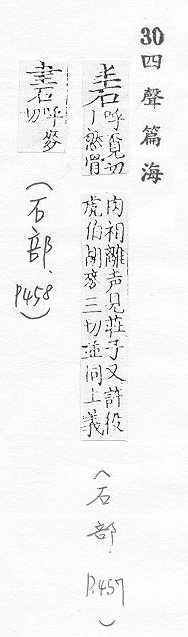 30四聲篇海
砉
呼覓切
丨然骨
肉相離声見莊子又許役
虎伯胡麥三切並同上義
(石部, P.457)
呼麥
切
(石部, P458)